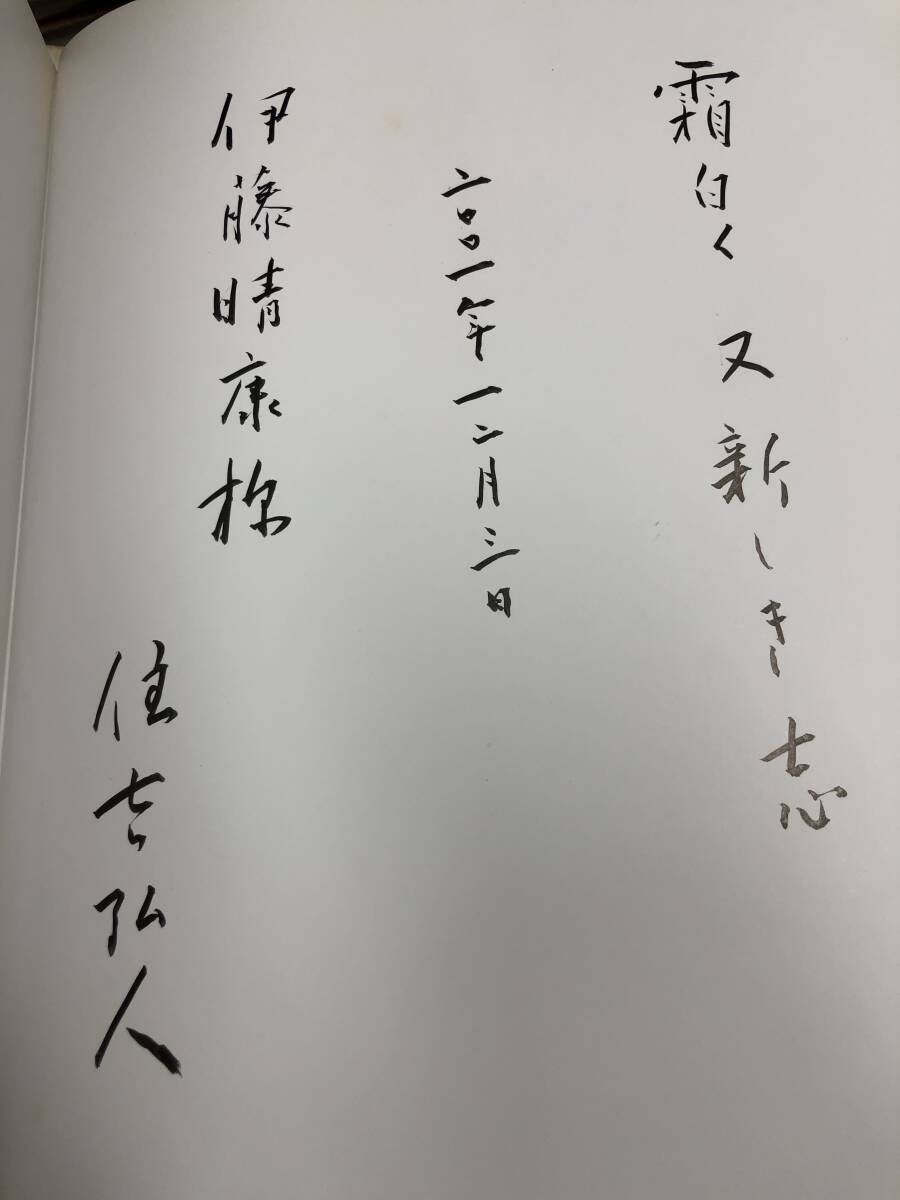 霜白く 又新しき志
二〇〇一年一二月三日
伊藤晴康様
住吉弘人